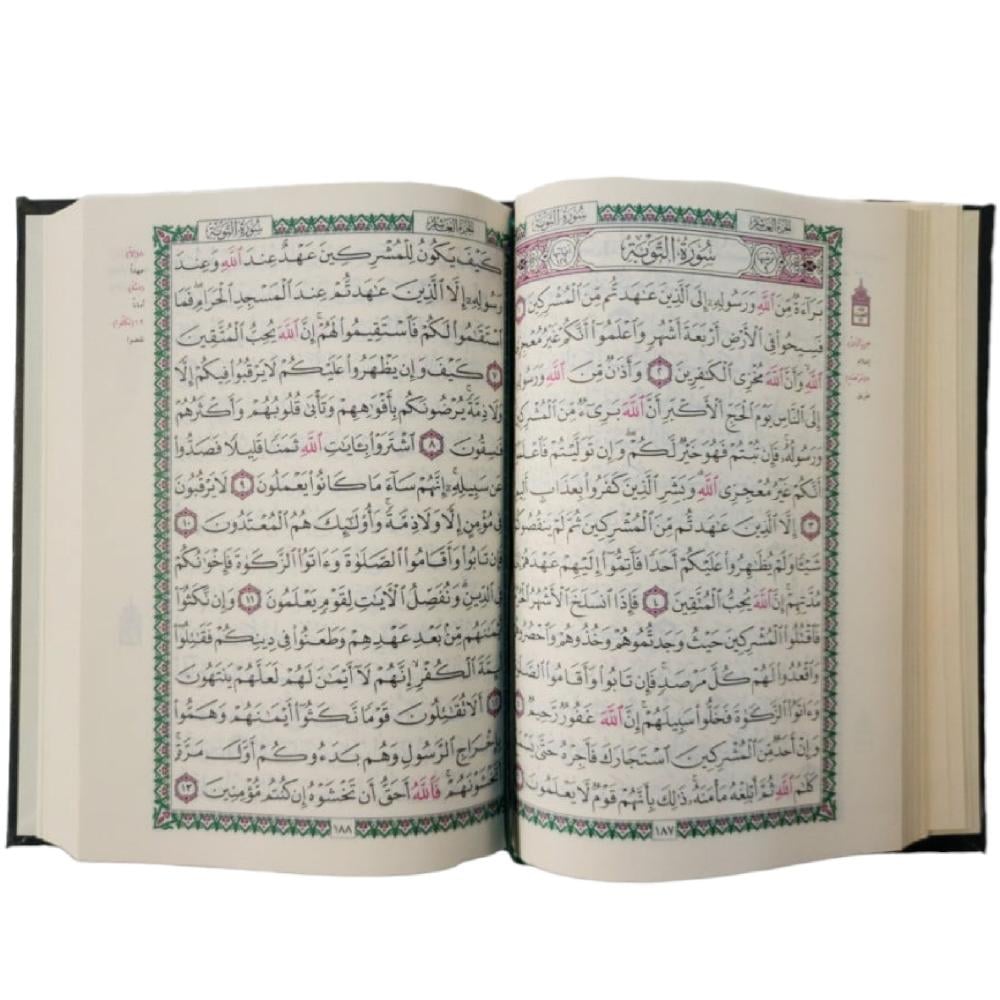 سُورَةُ التَّوْبَةِ
الجُزْءُ العَاشِرُ
سُورَةُ التَّوْبَةِ
بَرَآءَةٌ مِّنَ ٱللَّهِ وَرَسُولِهِۦٓ إِلَى ٱلَّذِينَ عَٰهَدتُّم مِّنَ ٱلْمُشْرِكِينَ
فَسِيحُوا۟ فِى ٱلْأَرْضِ أَرْبَعَةَ أَشْهُرٍ وَٱعْلَمُوٓا۟ أَنَّكُمْ غَيْرُ مُعْجِزِى
ٱللَّهِ وَأَنَّ ٱللَّهَ مُخْزِى ٱلْكَٰفِرِينَ ٢ وَأَذَٰنٌ مِّنَ ٱللَّهِ وَرَسُولِهِۦٓ
إِلَى ٱلنَّاسِ يَوْمَ ٱلْحَجِّ ٱلْأَكْبَرِ أَنَّ ٱللَّهَ بَرِىٓءٌ مِّنَ ٱلْمُشْرِكِينَ
وَرَسُولُهُۥ فَإِن تُبْتُمْ فَهُوَ خَيْرٌ لَّكُمْ وَإِن تَوَلَّيْتُمْ فَٱعْلَمُوٓا۟
أَنَّكُمْ غَيْرُ مُعْجِزِى ٱللَّهِ وَبَشِّرِ ٱلَّذِينَ كَفَرُوا۟ بِعَذَابٍ أَلِيمٍ
٣ إِلَّا ٱلَّذِينَ عَٰهَدتُّم مِّنَ ٱلْمُشْرِكِينَ ثُمَّ لَمْ يَنقُصُوكُمْ
شَيْـًٔا وَلَمْ يُظَٰهِرُوا۟ عَلَيْكُمْ أَحَدًا فَأَتِمُّوٓا۟ إِلَيْهِمْ عَهْدَهُمْ إِلَىٰ
مُدَّتِهِمْ إِنَّ ٱللَّهَ يُحِبُّ ٱلْمُتَّقِينَ ٤ فَإِذَا ٱنسَلَخَ ٱلْأَشْهُرُ ٱلْحُرُمُ
فَٱقْتُلُوا۟ ٱلْمُشْرِكِينَ حَيْثُ وَجَدتُّمُوهُمْ وَخُذُوهُمْ وَٱحْصُرُوهُمْ
وَٱقْعُدُوا۟ لَهُمْ كُلَّ مَرْصَدٍ فَإِن تَابُوا۟ وَأَقَامُوا۟ ٱلصَّلَوٰةَ
وَءَاتَوُا۟ ٱلزَّكَوٰةَ فَخَلُّوا۟ سَبِيلَهُمْ إِنَّ ٱللَّهَ غَفُورٌ رَّحِيمٌ
وَإِنْ أَحَدٌ مِّنَ ٱلْمُشْرِكِينَ ٱسْتَجَارَكَ فَأَجِرْهُ حَتَّىٰ يَسْمَعَ
كَلَٰمَ ٱللَّهِ ثُمَّ أَبْلِغْهُ مَأْمَنَهُۥ ذَٰلِكَ بِأَنَّهُمْ قَوْمٌ لَّا يَعْلَمُونَ
١٨٧
سُورَةُ التَّوْبَةِ
الجُزْءُ العَاشِرُ
كَيْفَ يَكُونُ لِلْمُشْرِكِينَ عَهْدٌ عِندَ ٱللَّهِ وَعِندَ
رَسُولِهِۦٓ إِلَّا ٱلَّذِينَ عَٰهَدتُّمْ عِندَ ٱلْمَسْجِدِ ٱلْحَرَامِ فَمَا
ٱسْتَقَٰمُوا۟ لَكُمْ فَٱسْتَقِيمُوا۟ لَهُمْ إِنَّ ٱللَّهَ يُحِبُّ ٱلْمُتَّقِينَ
٧ كَيْفَ وَإِن يَظْهَرُوا۟ عَلَيْكُمْ لَا يَرْقُبُوا۟ فِيكُمْ إِلًّا
وَلَا ذِمَّةً يُرْضُونَكُم بِأَفْوَٰهِهِمْ وَتَأْبَىٰ قُلُوبُهُمْ وَأَكْثَرُهُمْ
فَٰسِقُونَ ٨ ٱشْتَرَوْا۟ بِـَٔايَٰتِ ٱللَّهِ ثَمَنًا قَلِيلًا فَصَدُّوا۟
عَن سَبِيلِهِۦٓ إِنَّهُمْ سَآءَ مَا كَانُوا۟ يَعْمَلُونَ ٩ لَا يَرْقُبُونَ
فِى مُؤْمِنٍ إِلًّا وَلَا ذِمَّةً وَأُو۟لَٰٓئِكَ هُمُ ٱلْمُعْتَدُونَ ١٠
فَإِن تَابُوا۟ وَأَقَامُوا۟ ٱلصَّلَوٰةَ وَءَاتَوُا۟ ٱلزَّكَوٰةَ فَإِخْوَٰنُكُمْ
فِى ٱلدِّينِ وَنُفَصِّلُ ٱلْءَايَٰتِ لِقَوْمٍ يَعْلَمُونَ ١١ وَإِن نَّكَثُوٓا۟
أَيْمَٰنَهُم مِّنۢ بَعْدِ عَهْدِهِمْ وَطَعَنُوا۟ فِى دِينِكُمْ فَقَٰتِلُوٓا۟
أَئِمَّةَ ٱلْكُفْرِ إِنَّهُمْ لَآ أَيْمَٰنَ لَهُمْ لَعَلَّهُمْ يَنتَهُونَ
١٢ أَلَا تُقَٰتِلُونَ قَوْمًا نَّكَثُوٓا۟ أَيْمَٰنَهُمْ وَهَمُّوا۟
بِإِخْرَاجِ ٱلرَّسُولِ وَهُم بَدَءُوكُمْ أَوَّلَ مَرَّةٍ
أَتَخْشَوْنَهُمْ فَٱللَّهُ أَحَقُّ أَن تَخْشَوْهُ إِن كُنتُم مُّؤْمِنِينَ ١٣
١٨٨